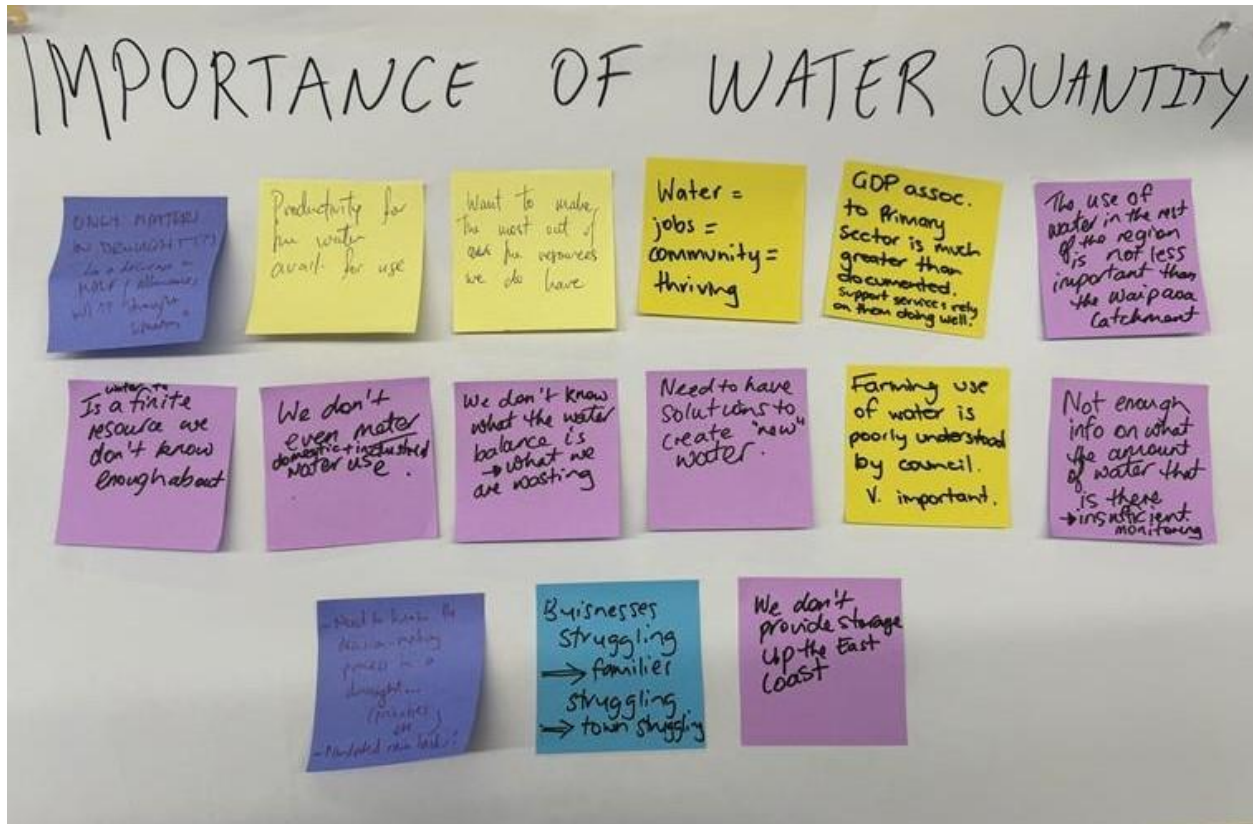 IMPORTANCE OF WATER QUANTITY
ONLY MATTERS
IN DROUGHT???
Productivity for
the water
avail. for use
Want to make
the most out of
the resources
we do have
Water =
jobs =
community =
thriving
GDP assoc.
to Primary
Sector is much
greater than
documented.
Support services rely
on them doing well.
The use of
water in the rest
of the region
is not less
important than
the Waipaoa
Catchment
water
Is a finite
resource we
don't know
enough about
We don't
even meter
domestic + industrial
water use.
We don't know
what the water
balance is
→ what we
are wasting
Need to have
solutions to
create "new"
water.
Farming use
of water is
poorly understood
by council.
V. important.
Not enough
info on what
the amount
of water that
is there
→ insufficient
monitoring
- Need to know the
decision-making
process in a
drought...
Buisnesses
struggling
⇒ families
struggling
⇒ town struggling
We don't
provide storage
up the East
Coast